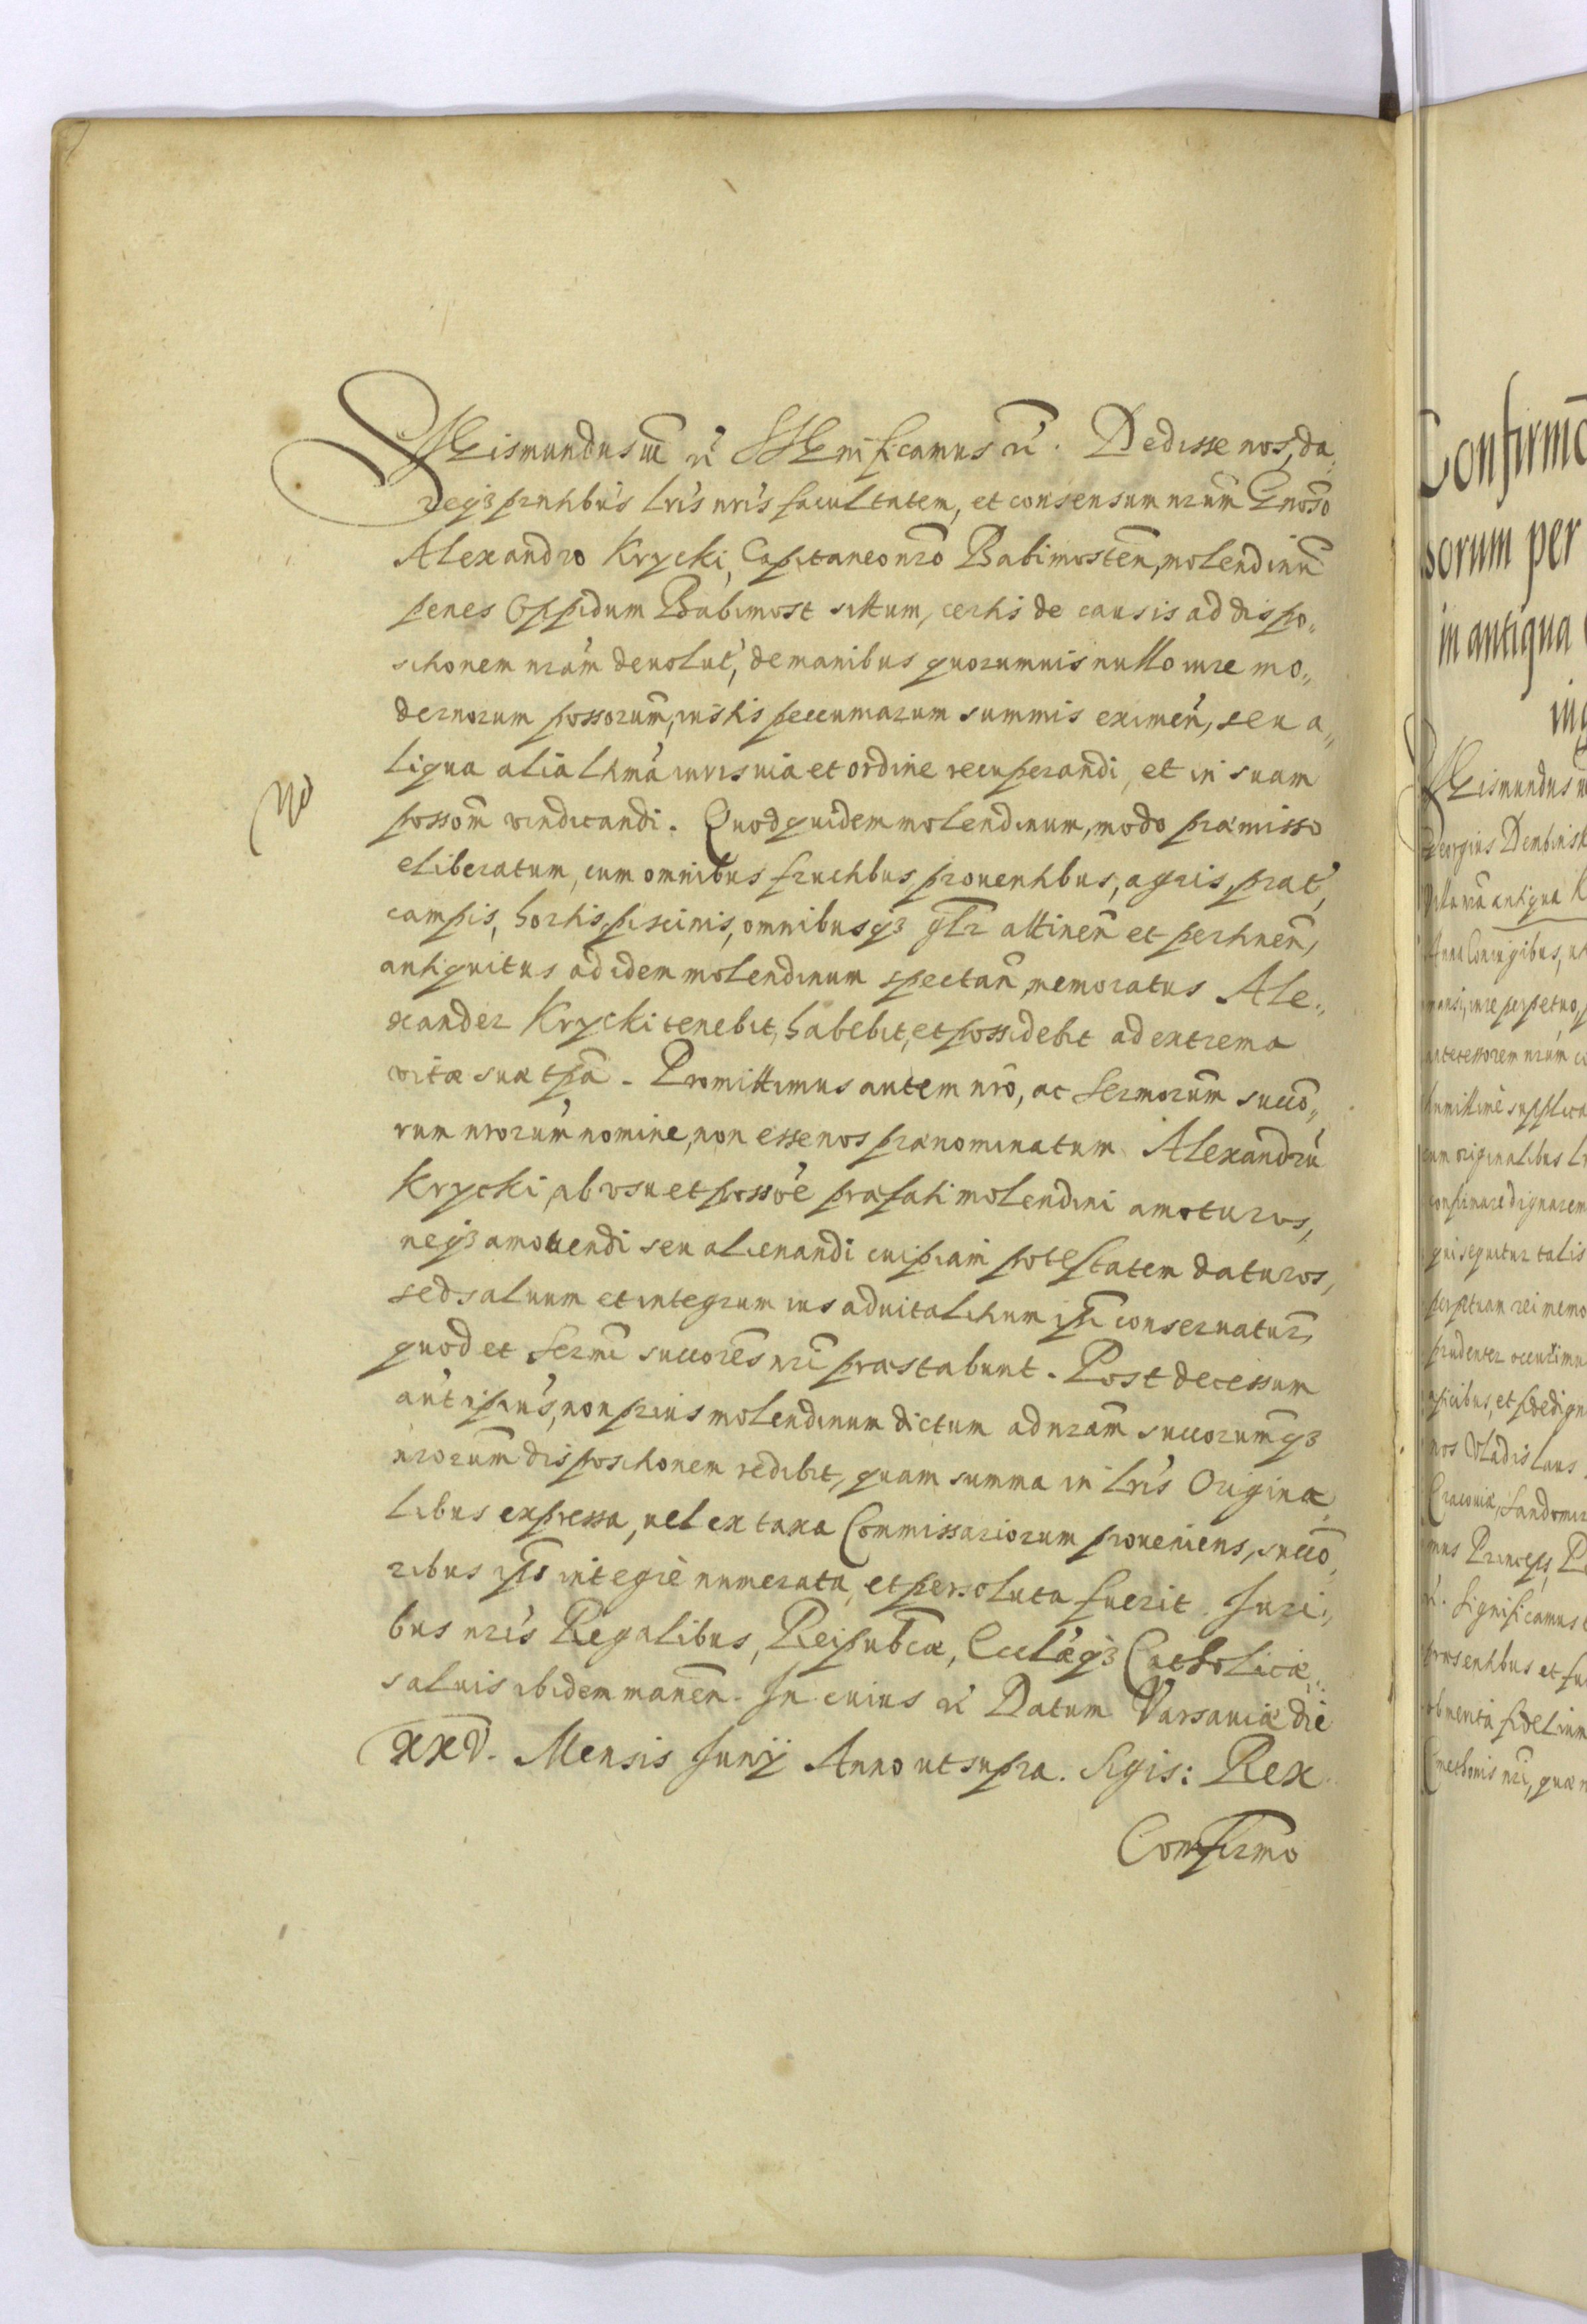 Sigismundus III etc. Significamus etc. Dedisse nos, da„
req3 prntibus lris nris facultatem, et consensum nrum Gnoso
Alexandro Krycki, Capitaneo nro Babimosten, molendinu
penes Oppidum Babimost situm, certis de causis ad dispo„
sitionem nram deuolut, de manibus quorumuis nullo iure mo„
dernorum possorum, iustis pecuniarum summis eximen, seu a„
liqua alia ltima iuris uia et ordine recuperandi, et in suam
possom vindicandi. Quod quidem molendinum, modo præmisso
eliberatum, cum omnibus fructibus, prouentibus, agris, prat,
campis, hortis, piscinis, omnibusq3 glr attinen et pertinen,
antiquitus ad idem molendinum spectan, memoratus Ale„
xander Krycki tenebit, habebit, et possidebit ad extrema
vitæ suæ tpa. Promittimus autem nro, ac Sermorum succo„
rum nrorum nomine, non esse nos prænominatum Alexandru
Krycki, ab vsu et possoe præfati molendini amoturos,
neq3 amouendi seu alienandi cuipiam potestatem daturos,
sed saluum et integrum ius aduitalitium ipsi conseruatur,
quod et Sermi succores nri præstabunt. Post decessum
aut ipius, non prius molendinum dictum ad nram succorumq3
nrorum dispositionem redibit, quam summa in lris Origina„
libus expressa, uel ex taxa Commissariorum proueniens, succo„
ribus ipso integrè numerata, et persoluta fuerit. Juri„
bus nris Regalibus, Reipubcæ, Ecclæq3 Catholicæ„
saluis ibidem manen. In cuius etc. Datum Varsauiæ die
XXV. Mensis Junij Anno ut supra. Sigis: Rex
Confirmo
Confirmo
sorum per
in antiqua
Sigismundus
Georgius Dembinsk
antiqua
Coniugibus, ut
iure perpetuo,
antecessorem nrum
humillimè supplica
originalibus
confirmare dignarem
qui sequitur talis
perpetuam rei memo
prudenter occurrimu
apicibus, et
nos Vladislaus
Cracouiæ, Sandomir
Princeps,
Significamus
præsentibus et fu
ob merita fidelium
Cmethonis nri, quæ